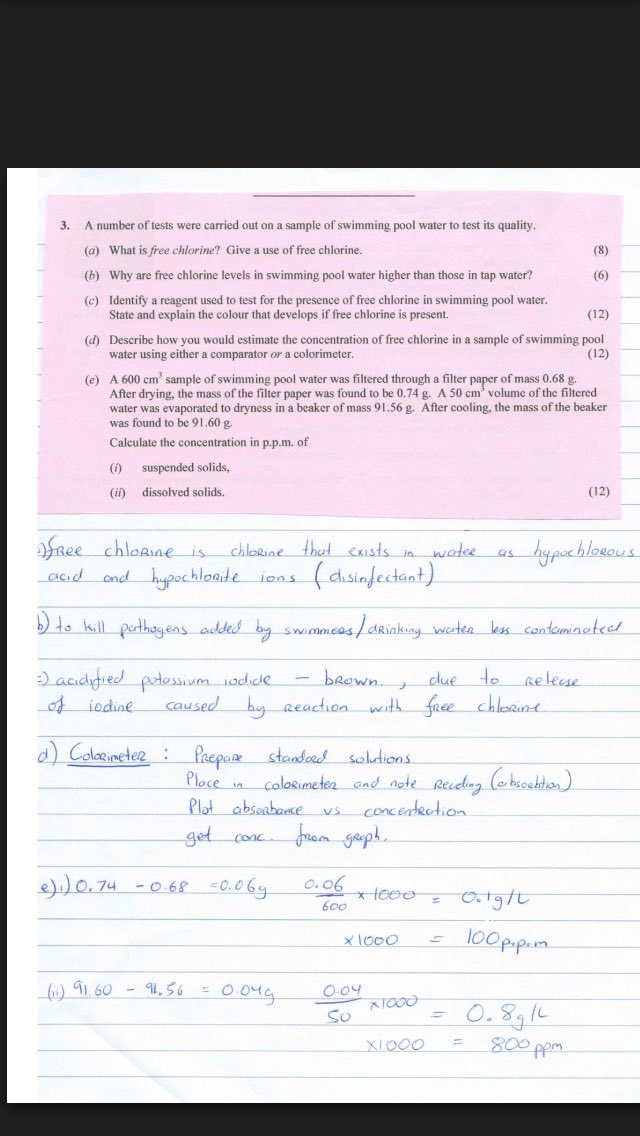 3. A number of tests were carried out on a sample of swimming pool water to test its quality.
(a) What is free chlorine? Give a use of free chlorine. (8)
(b) Why are free chlorine levels in swimming pool water higher than those in tap water? (6)
(c) Identify a reagent used to test for the presence of free chlorine in swimming pool water.
State and explain the colour that develops if free chlorine is present. (12)
(d) Describe how you would estimate the concentration of free chlorine in a sample of swimming pool
water using either a comparator or a colorimeter. (12)
(e) A 600 cm³ sample of swimming pool water was filtered through a filter paper of mass 0.68 g.
After drying, the mass of the filter paper was found to be 0.74 g. A 50 cm³ volume of the filtered
water was evaporated to dryness in a beaker of mass 91.56 g. After cooling, the mass of the beaker
was found to be 91.60 g.
Calculate the concentration in p.p.m. of
(i) suspended solids,
(ii) dissolved solids. (12)
) free chlorine is chlorine that exists in water as hypochlorous
acid and hypochlorite ions (disinfectant)
b) to kill pathogens added by swimmers/drinking water less contaminated
c) acidified potassium iodide - brown, due to release
of iodine caused by reaction with free chlorine.
d) Colorimeter : Prepare standard solutions
Place in colorimeter and note reading (absorbtion)
Plot absorbance vs concentration
get conc. from graph.
e) i) 0.74 - 0.68 = 0.06g 0.06/600 x 1000 = 0.1g/L
x 1000 = 100p.p.m
(ii) 91.60 - 91.56 = 0.04g 0.04/50 x1000 = 0.8g/L
x1000 = 800 ppm